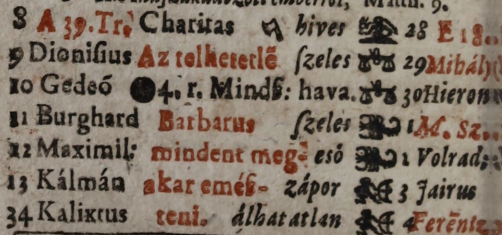 Matth. 9.
8 A 39. Tr. Charitas hives 28 E 18.
9 Dionisius Az telhetetlē szeles 29 Mihály
10 Gedeó 4. r. Mindsz: hava. 30 Hieron
11 Burghard Barbarus szeles 1 M. Sz.
12 Maximil: mindent meg- eső 2 Volrad:
13 Kálmán akar emész- zápor 3 Jairus
34 Kalixtus teni. álhatatlan 4 Ferēntz